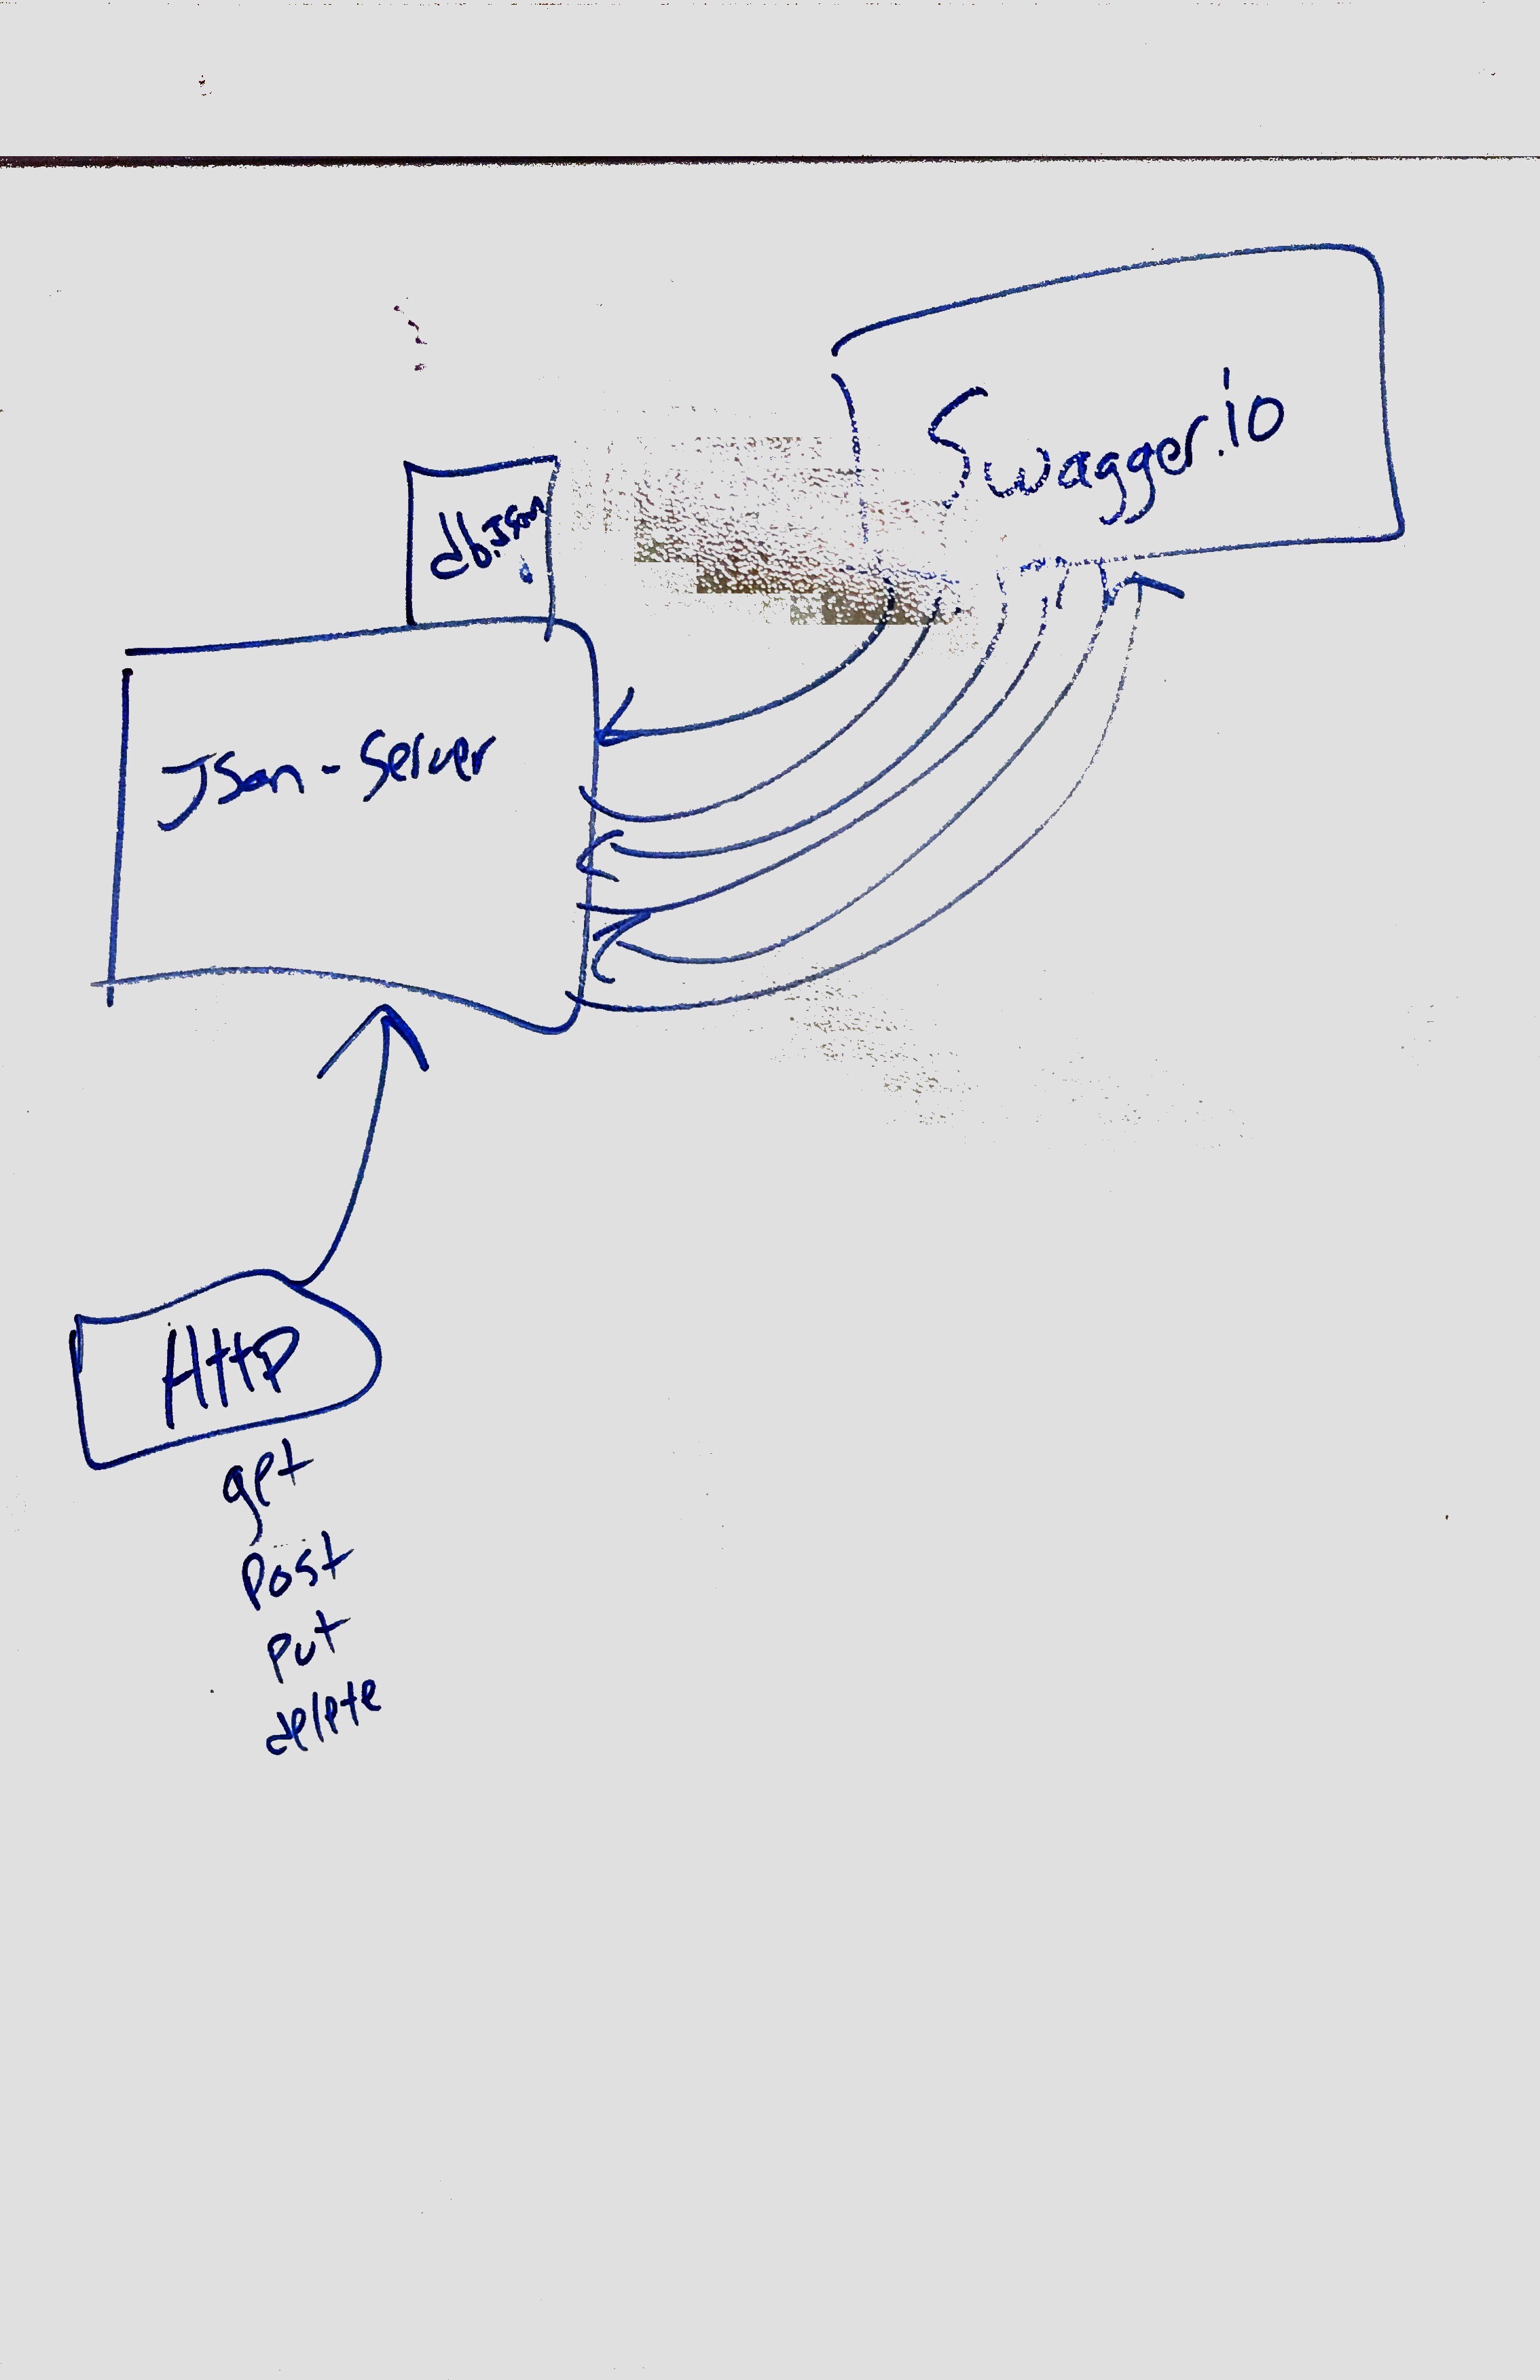 Swagger.io
db.json
Json-Server
Http
get
Post
Put
delete